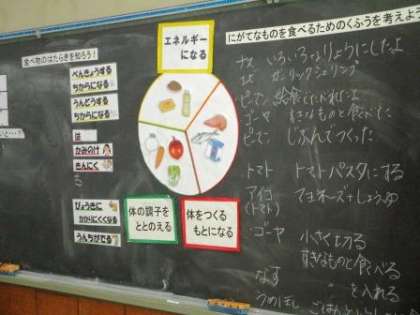 食べ物のはたらきを知ろう!
べんきょうする
ちからになる
うんどうする
ちからになる
は
かみのけ
きんにく
びょうきに
かかりにくくなる
うんちがでる
エネルギー
になる
体の調子を
ととのえる
体をつくる
もとになる
にがてなものを食べるためのくふうを考えよう
ナス いろいろなりょうりにしたよ
ピーマン 給食でたべれたよ
ゴーヤ すきなものと食べた
ピーマン じぶんでつくった
トマト トマトパスタにする
(トマト) マヨネーズ+しょうゆ
・ゴーヤ 小さく切る
すきなものと食べる
なす 〃 を入れる